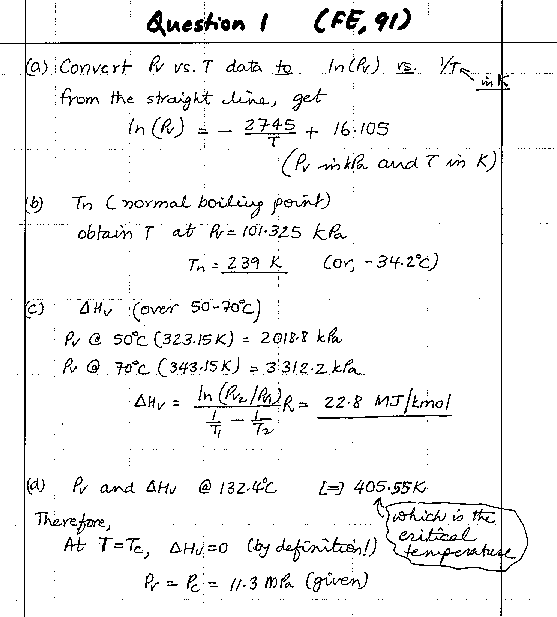 Question 1 (FE, 91)
(a) Convert Pv vs. T data to ln(Pv) vs. 1/T in K
from the straight line, get
ln(Pv) = - 2745/T + 16.105
(Pv in kPa and T in K)
(b) Tn (normal boiling point)
obtain T at Pv = 101.325 kPa
Tn = 239 K (or, -34.2°C)
(c) ΔHv (over 50-70°C)
Pv @ 50°C (323.15K) = 2018.8 kPa
Pv @ 70°C (343.15K) = 3312.2 kPa
ΔHv = ln(Pv2/Pv1) / (1/T1 - 1/T2) R = 22.8 MJ/kmol
(d) Pv and ΔHv @ 132.4°C [=] 405.55K
which is the
critical
temperature
Therefore,
At T=Tc, ΔHv=0 (by definition!)
Pv = Pc = 11.3 MPa (given)